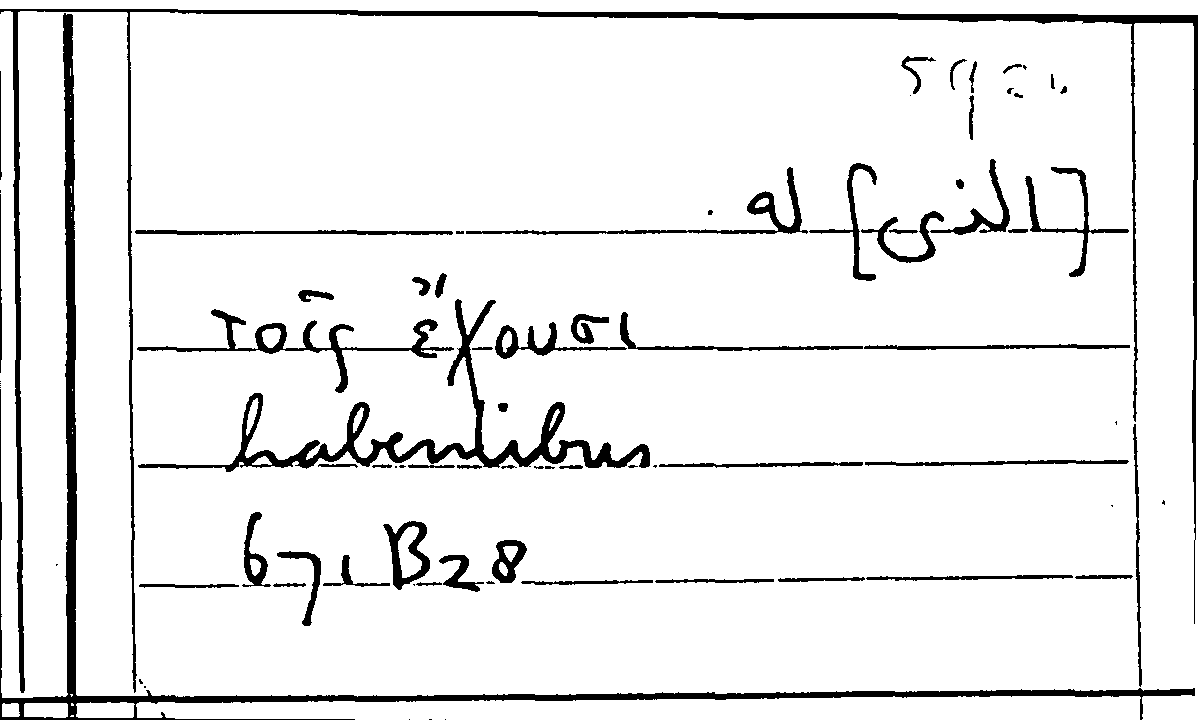 [الذى] له
τοῖς ἔχουσι
habentibus
671 B 28